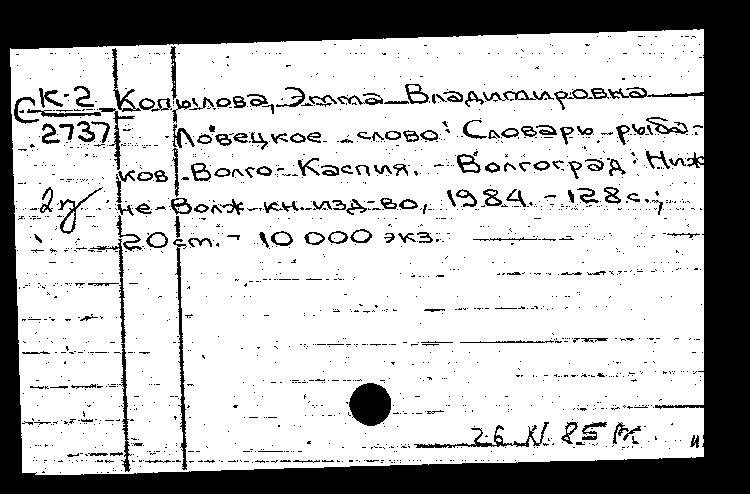 С К-2 Копылова, Эмма Владимировна
2737 Ловецкое слово: Словарь рыба-
ков Волго-Каспия. - Волгоград: Ниж
не-Волж кн. изд-во, 1984. - 128 с.;
20 см. - 10 000 экз.
26 XI 85